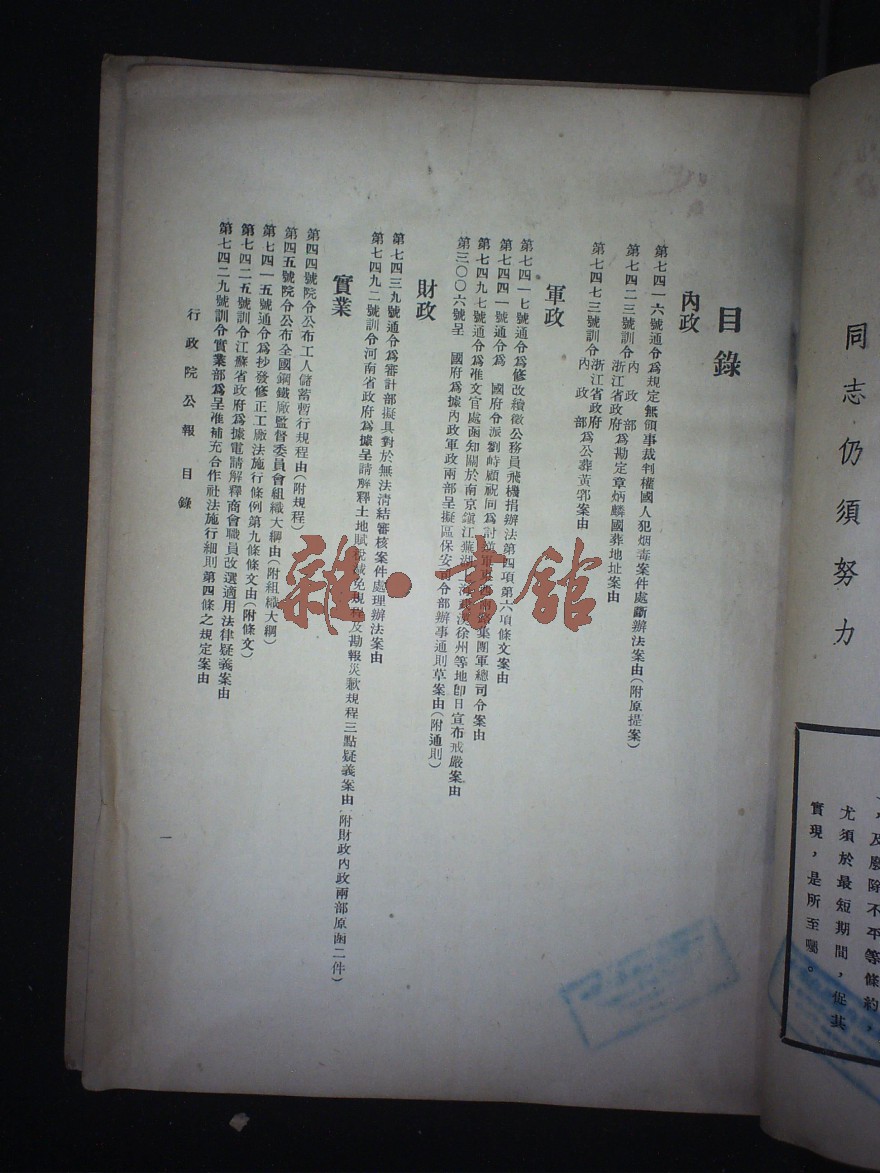 同志仍須努力
及廢除不平等條約，
尤須於最短期間，促其
實現，是所至囑。
目錄
內政
第七四一六號通令爲規定無領事裁判權國人犯烟毒案件處斷辦法案由(附原提案)
第七四二三號訓令內政部浙江省政府爲勘定章炳麟國葬地址案由
第七四七三號訓令浙江省政府內政部爲公葬黃郛案由
軍政
第七四一七號通令爲修改續徵公務員飛機捐辦法第四項第六項條文案由
第七四四一號通令爲 國府令派劉峙顧祝同爲討逆軍東集團軍總司令案由
第七四九七號通令爲准文官處函知關於南京鎮江蕪湖上海徐州等地卽日宣布戒嚴案由
第三〇〇六號呈 國府爲據內政軍政兩部呈擬區保安司令部辦事通則草案由(附通則)
財政
第七四三九號通令爲審計部擬具對於無法清結審核案件處理辦法案由
第七四九二號訓令河南省政府爲據呈請解釋土地賦稅減免規程及勘報災歉規程三點疑義案由(附財政內政兩部原函二件)
實業
第四四號院令公布工人儲蓄暫行規程由(附規程)
第四五號院令公布全國鋼鐵廠監督委員會組織大綱由(附組織大綱)
第七四一五號通令爲抄發修正工廠法施行條例第九條條文由(附條文)
第七四二五號訓令江蘇省政府爲據電請解釋商會職員改選適用法律疑義案由
第七四二九號訓令實業部爲呈准補充合作社法施行細則第四條之規定案由
行政院公報 目錄
一
雜·書館